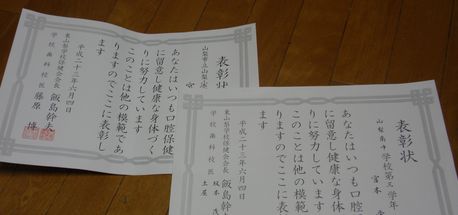 表彰状
山梨市立山梨
宮
あなたはいつも口腔保健
に留意し健康な身体づく
りに努力しています
このことは他の模範であ
りますのでここに表彰し
ます
平成二十三年六月四日
東山梨学校保健会会長 飯島幹夫
学校歯科校医 藤原
表彰状
山梨南中学校第三学年
宮本
あなたはいつも口腔保
に留意し健康な身体
りに努力しています
このことは他の模範
りますのでここに表
ます
平成二十三年六月四日
東山梨学校保健会会長 飯島幹
学校歯科校医
土屋